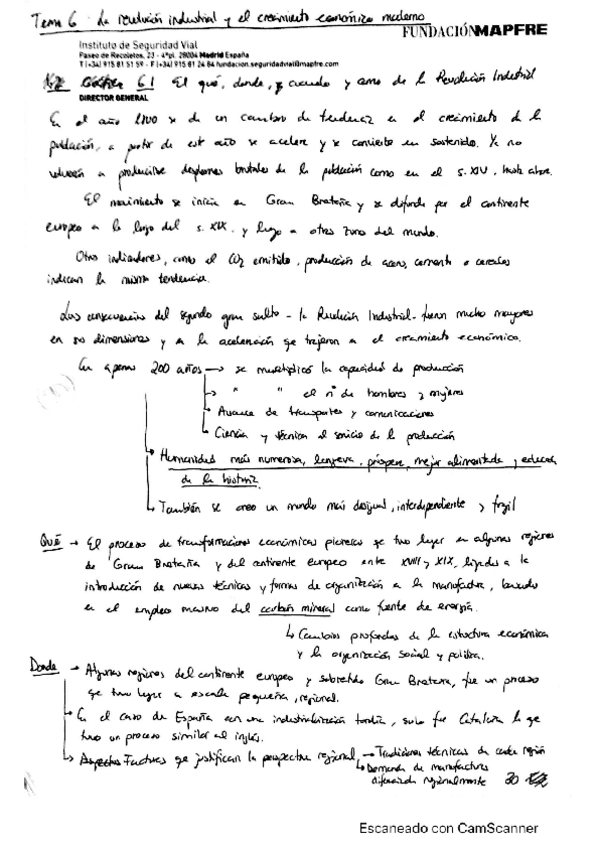 Tema 6. La revolución industrial y el crecimiento económico moderno
FUNDACIÓNMAPFRE
Instituto de Seguridad Vial
Paseo de Recoletos, 23 - 4ºpl. 28004 Madrid España
T (+34) 915 81 51 59 - F (+34) 915 81 24 84 fundacion.seguridadvial@mapfre.com
6.1 El qué, donde, y cuando y como de la Revolución Industrial
DIRECTOR GENERAL
En el año se da un cambio de tendencia en el crecimiento de la
población, a partir de este año se acelera y se convierte en sostenido. Ya no
volverán a producirse desplomes brutales de la población como en el s. XIV, hasta ahora.
El movimiento se inicia en Gran Bretaña y se difunde por el continente
europeo a lo largo del s. XIX, y luego a otras zonas del mundo.
Otros indicadores, como el CO2 emitido, producción de acero, cemento o cereales
indican la misma tendencia.
Las consecuencias del segundo gran salto - la Revolución Industrial - fueron mucho mayores
en sus dimensiones y en la aceleración que trajeron a el crecimiento económico.
En apenas 200 años → se multiplicó la capacidad de producción
→ " " el nº de hombres y mujeres
→ Avance de transportes y comunicaciones
→ Ciencia y técnica al servicio de la producción
→ Humanidad más numerosa, longeva, próspera, mejor alimentada y educada
de la historia.
→ También se creo un mundo más desigual, interdependiente y frágil
QUÉ → El proceso de transformaciones económicas pioneras que tuvo lugar en algunas regiones
de Gran Bretaña y del continente europeo entre XVIII y XIX, ligadas a la
introducción de nuevas técnicas y formas de organización a la manufactura, basadas
en el empleo masivo del carbón mineral como fuente de energía.
↳ Cambios profundos de la estructura económica
y la organización social y política.
Donde → Algunas regiones del continente europeo y sobretodo Gran Bretaña, fue un proceso
que tuvo lugar a escala pequeña, regional.
→ En el caso de España con una industrialización tardía, solo fue Cataluña la que
tuvo un proceso similar al inglés.
→ Aspectos Factores que justifican la perspectiva regional → Tradiciones técnicas de cada región
↳ Demanda de manufactura
diferenciada regionalmente
Escaneado con CamScanner